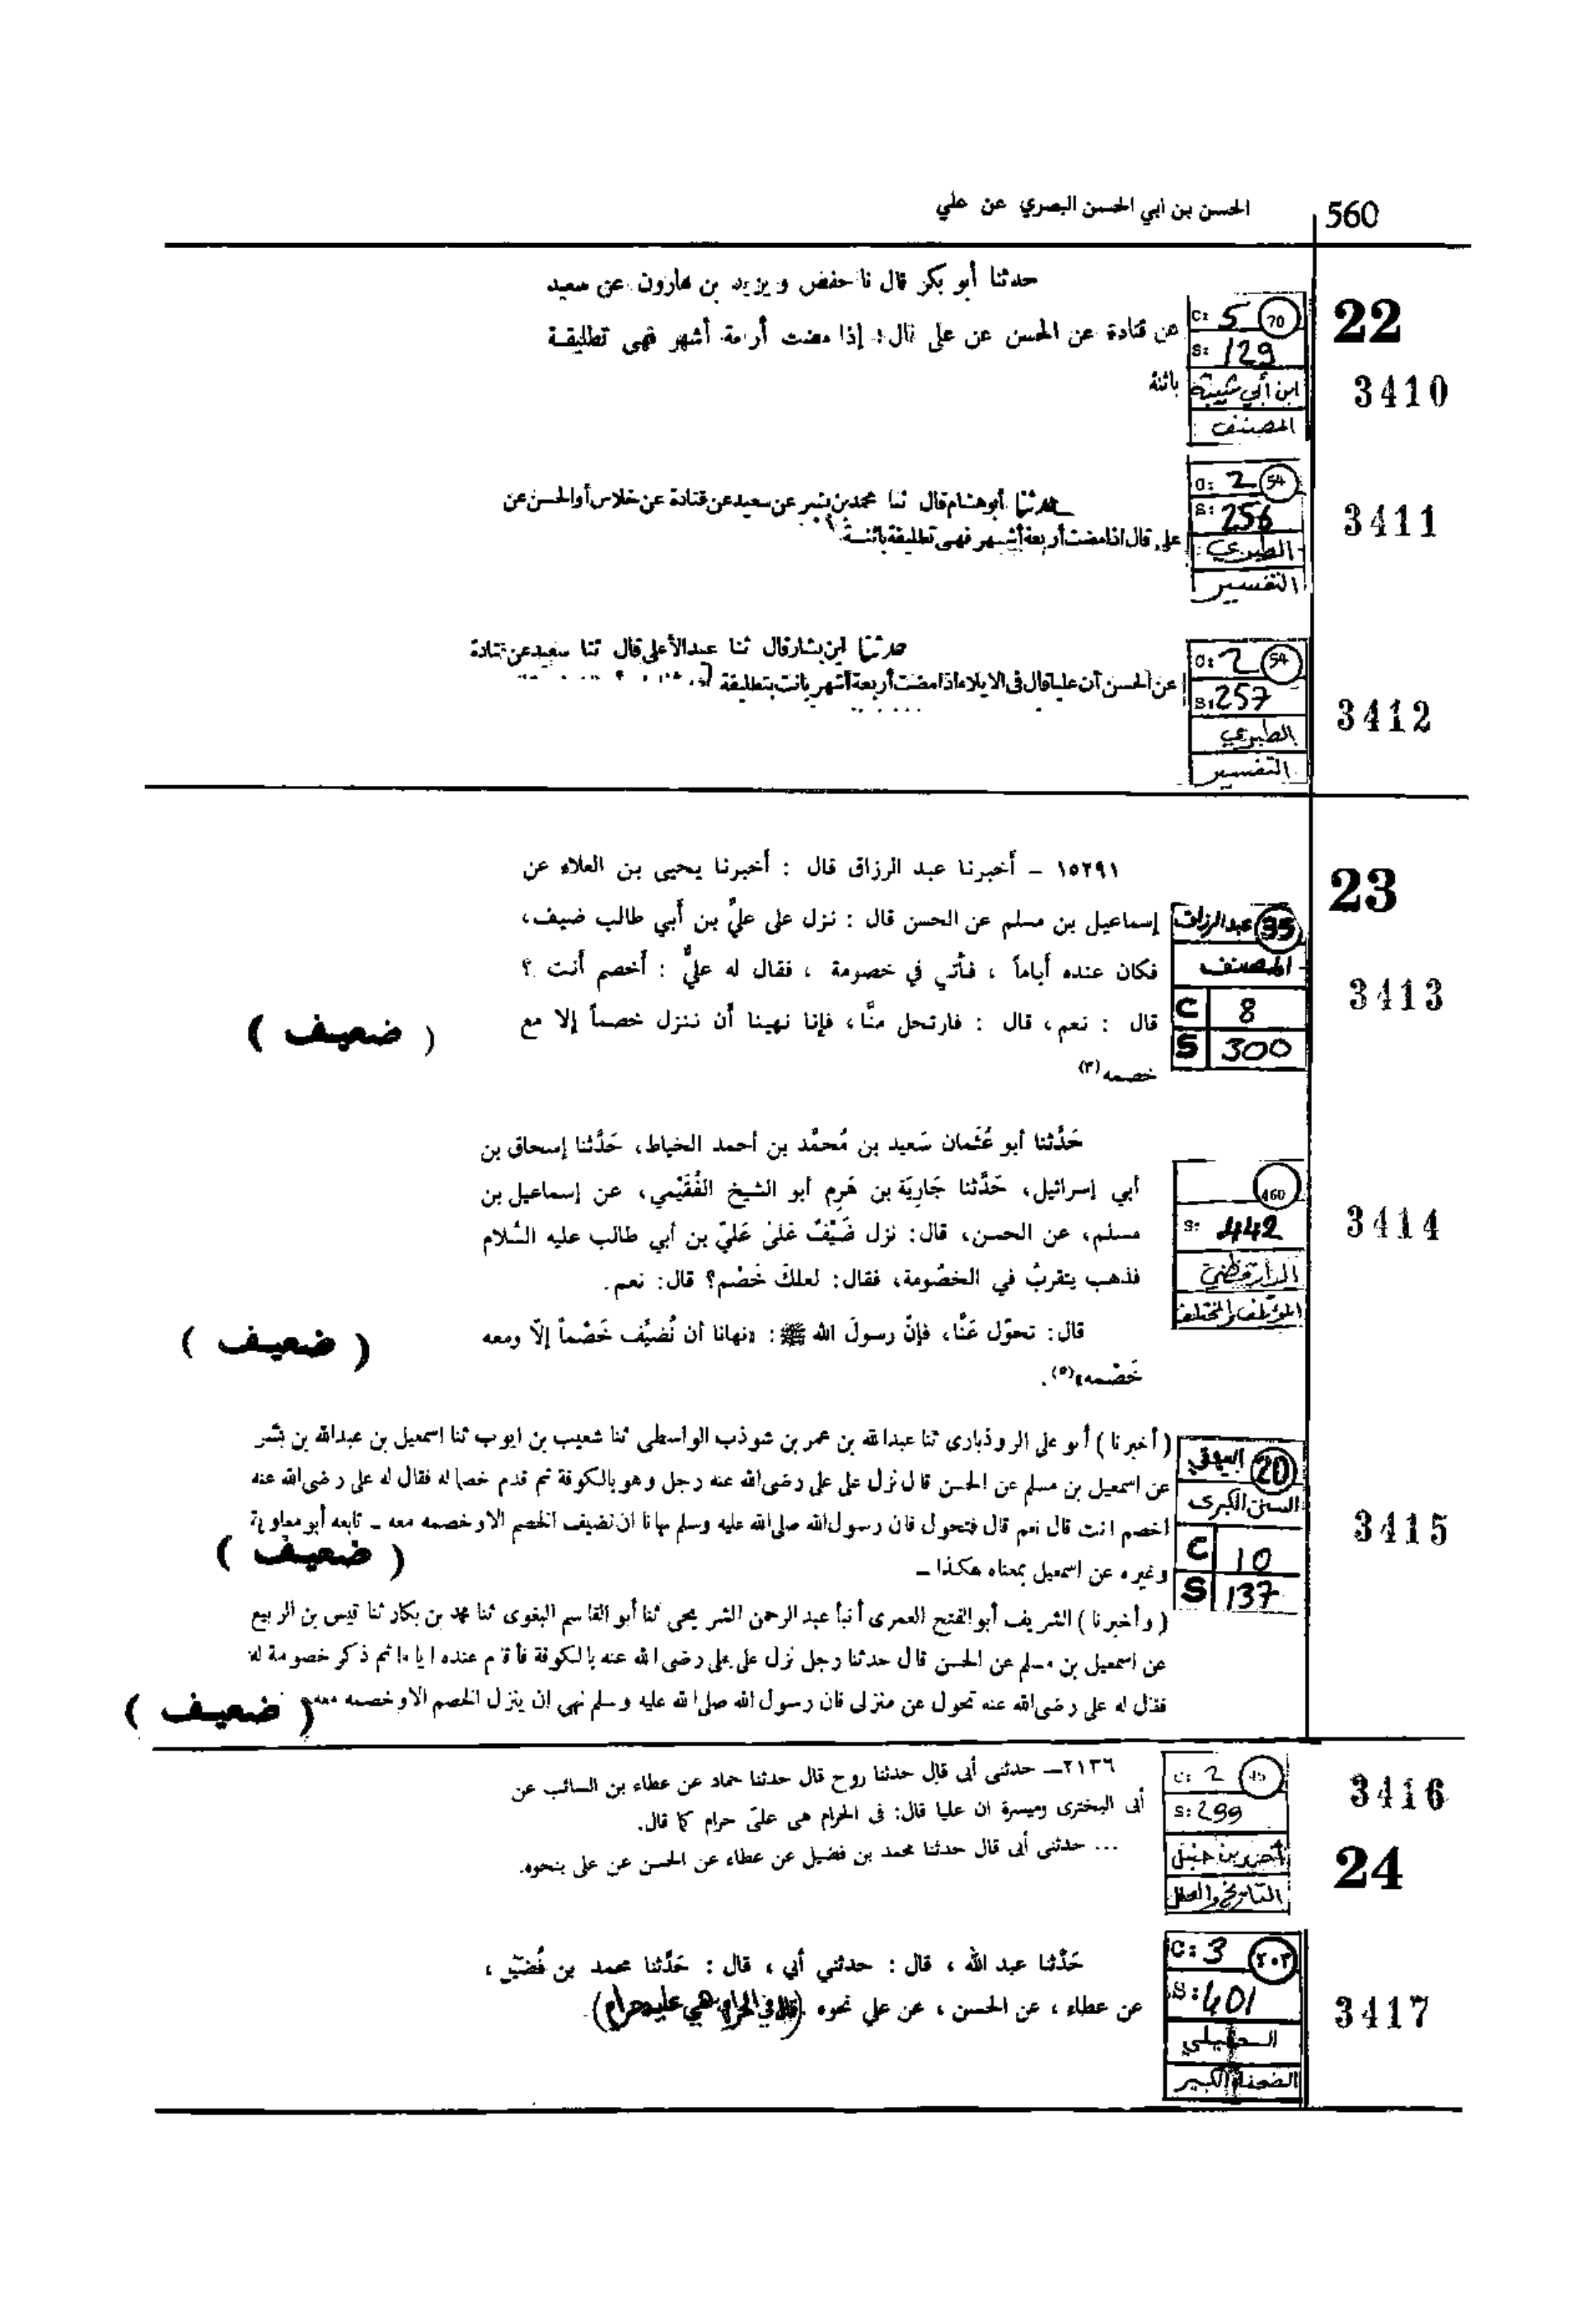 560
الحسن بن ابي الحسن البصري عن علي
22
3410
C: 5 70
S: 129
ابن أبي شيبة
المصنف
حدثنا أبو بكر قال نا حفض ويزيد بن هارون عن سعيد
عن قتادة عن الحسن عن على قال: إذا مضت أربعة أشهر فهى تطليقة
بائنة
3411
C: 2 54
S: 256
الطبري
التفسير
حدثنا أبو هشام قال ثنا محمد بن بشر عن سعيد عن قتادة عن خلاس أو الحسن عن
على قال اذا مضت أربعة أشهر فهى تطليقة بائنة
3412
C: 2 54
S: 257
الطبري
التفسير
حدثنا ابن بشار قال ثنا عبد الأعلى قال ثنا سعيد عن قتادة
عن الحسن أن عليا قال فى الايلاء اذا مضت أربعة أشهر بانت بتطليقة
23
3413
35 عبد الرزاق
المصنف
C 8
S 300
١٥٢٩١ – أخبرنا عبد الرزاق قال : أخبرنا يحيى بن العلاء عن
إسماعيل بن مسلم عن الحسن قال : نزل على عليِّ بن أبي طالب ضيف،
فكان عنده أياماً ، فأتي في خصومة ، فقال له عليٌّ : أخصم أنت ؟
قال : نعم، قال : فارتحل منَّا، فإنا نهينا أن ننزل خصماً إلا مع
خصمه (٣)
( ضعيف )
3414
460
S: 442
الدارقطني
المؤتلف والمختلف
حَدَّثنا أبو عُثمان سَعيد بن مُحمَّد بن أحمد الخياط، حَدَّثنا إسحاق بن
أبي إسرائيل، حَدَّثنا جَارِيَة بن هَرِم أبو الشيخ الفُقَيْمي، عن إسماعيل بن
مسلم، عن الحسن، قال: نزل ضَيْفٌ عَلىٰ عَليّ بن أبي طالب عليه السَّلام
فذهب يتقربُ في الخصُومة، فقال: لعلكَ خَصْم؟ قال: نعم.
قال: تحوّل عَنَّا، فإنّ رسولَ الله ﷺ: «نهانا أن نُضيِّف خَصْماً إلّا ومعه
خَصْمه»(٥).
( ضعيف )
3415
20 البيهقي
السنن الكبرى
C 10
S 137
(أخبرنا) أبو على الروذبارى ثنا عبد الله بن عمر بن شوذب الواسطى ثنا شعيب بن ايوب ثنا اسمعيل بن عبدالله بن بشر
عن اسمعيل بن مسلم عن الحسن قال نزل على على رضى الله عنه رجل وهو بالكوفة ثم قدم خصما له فقال له على رضى الله عنه
اخصم انت قال نعم قال فتحول فان رسول الله صلى الله عليه وسلم نهانا ان نضيف الخصم الا وخصمه معه – تابعه أبو معاوية
وغيره عن اسمعيل بمعناه هكذا –
( ضعيف )
(وأخبرنا) الشريف أبو الفتح العمرى أنبأ عبد الرحمن الشريحى ثنا أبو القاسم البغوى ثنا محمد بن بكار ثنا قيس بن الربيع
عن اسمعيل بن مسلم عن الحسن قال حدثنا رجل نزل على على رضى الله عنه بالكوفة فأقام عنده اياما ثم ذكر خصومة له
فقال له على رضى الله عنه تحول عن منزلى فان رسول الله صلى الله عليه وسلم نهى ان ينزل الخصم الا وخصمه معه
( ضعيف )
3416
24
C: 2 45
S: 299
أحمد بن حنبل
التاريخ والعلل
٢١٣٦– حدثنى أبى قال حدثنا روح قال حدثنا حماد عن عطاء بن السائب عن
أبى البخترى وميسرة ان عليا قال: فى الحرام هى علىّ حرام كما قال.
... حدثنى أبى قال حدثنا محمد بن فضيل عن عطاء عن الحسن عن على بنحوه.
3417
C: 3 ٢٠٣
S: 401
العقيلي
الضعفاء الكبير
حَدَّثنا عبد الله ، قال : حدثني أبي ، قال : حَدَّثنا محمد بن فُضَيْل ،
عن عطاء ، عن الحسن ، عن علي نحوه . (قال في الحرام هي عليه حرام).